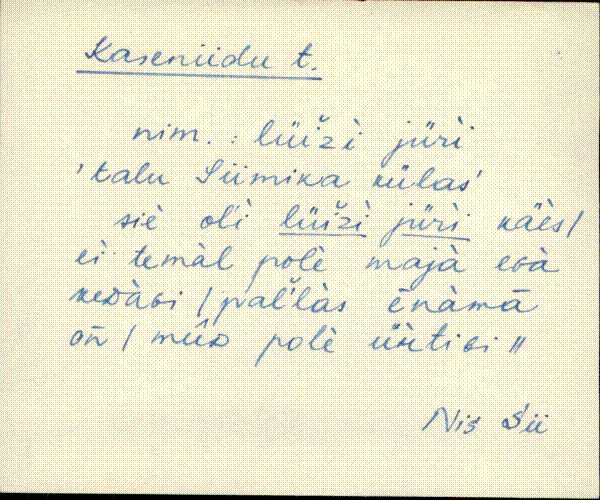 Kaseniidu t.
nim. : lüiži̬ jüri̬
'talu Siimika külas'
siè oĺi lüižì jürì käès/
ei temàl polè majà eGà
keDàGi / pal̆làs ēnàmā
oń / mûD polè ǖ̀htiGi //
Nis Sii